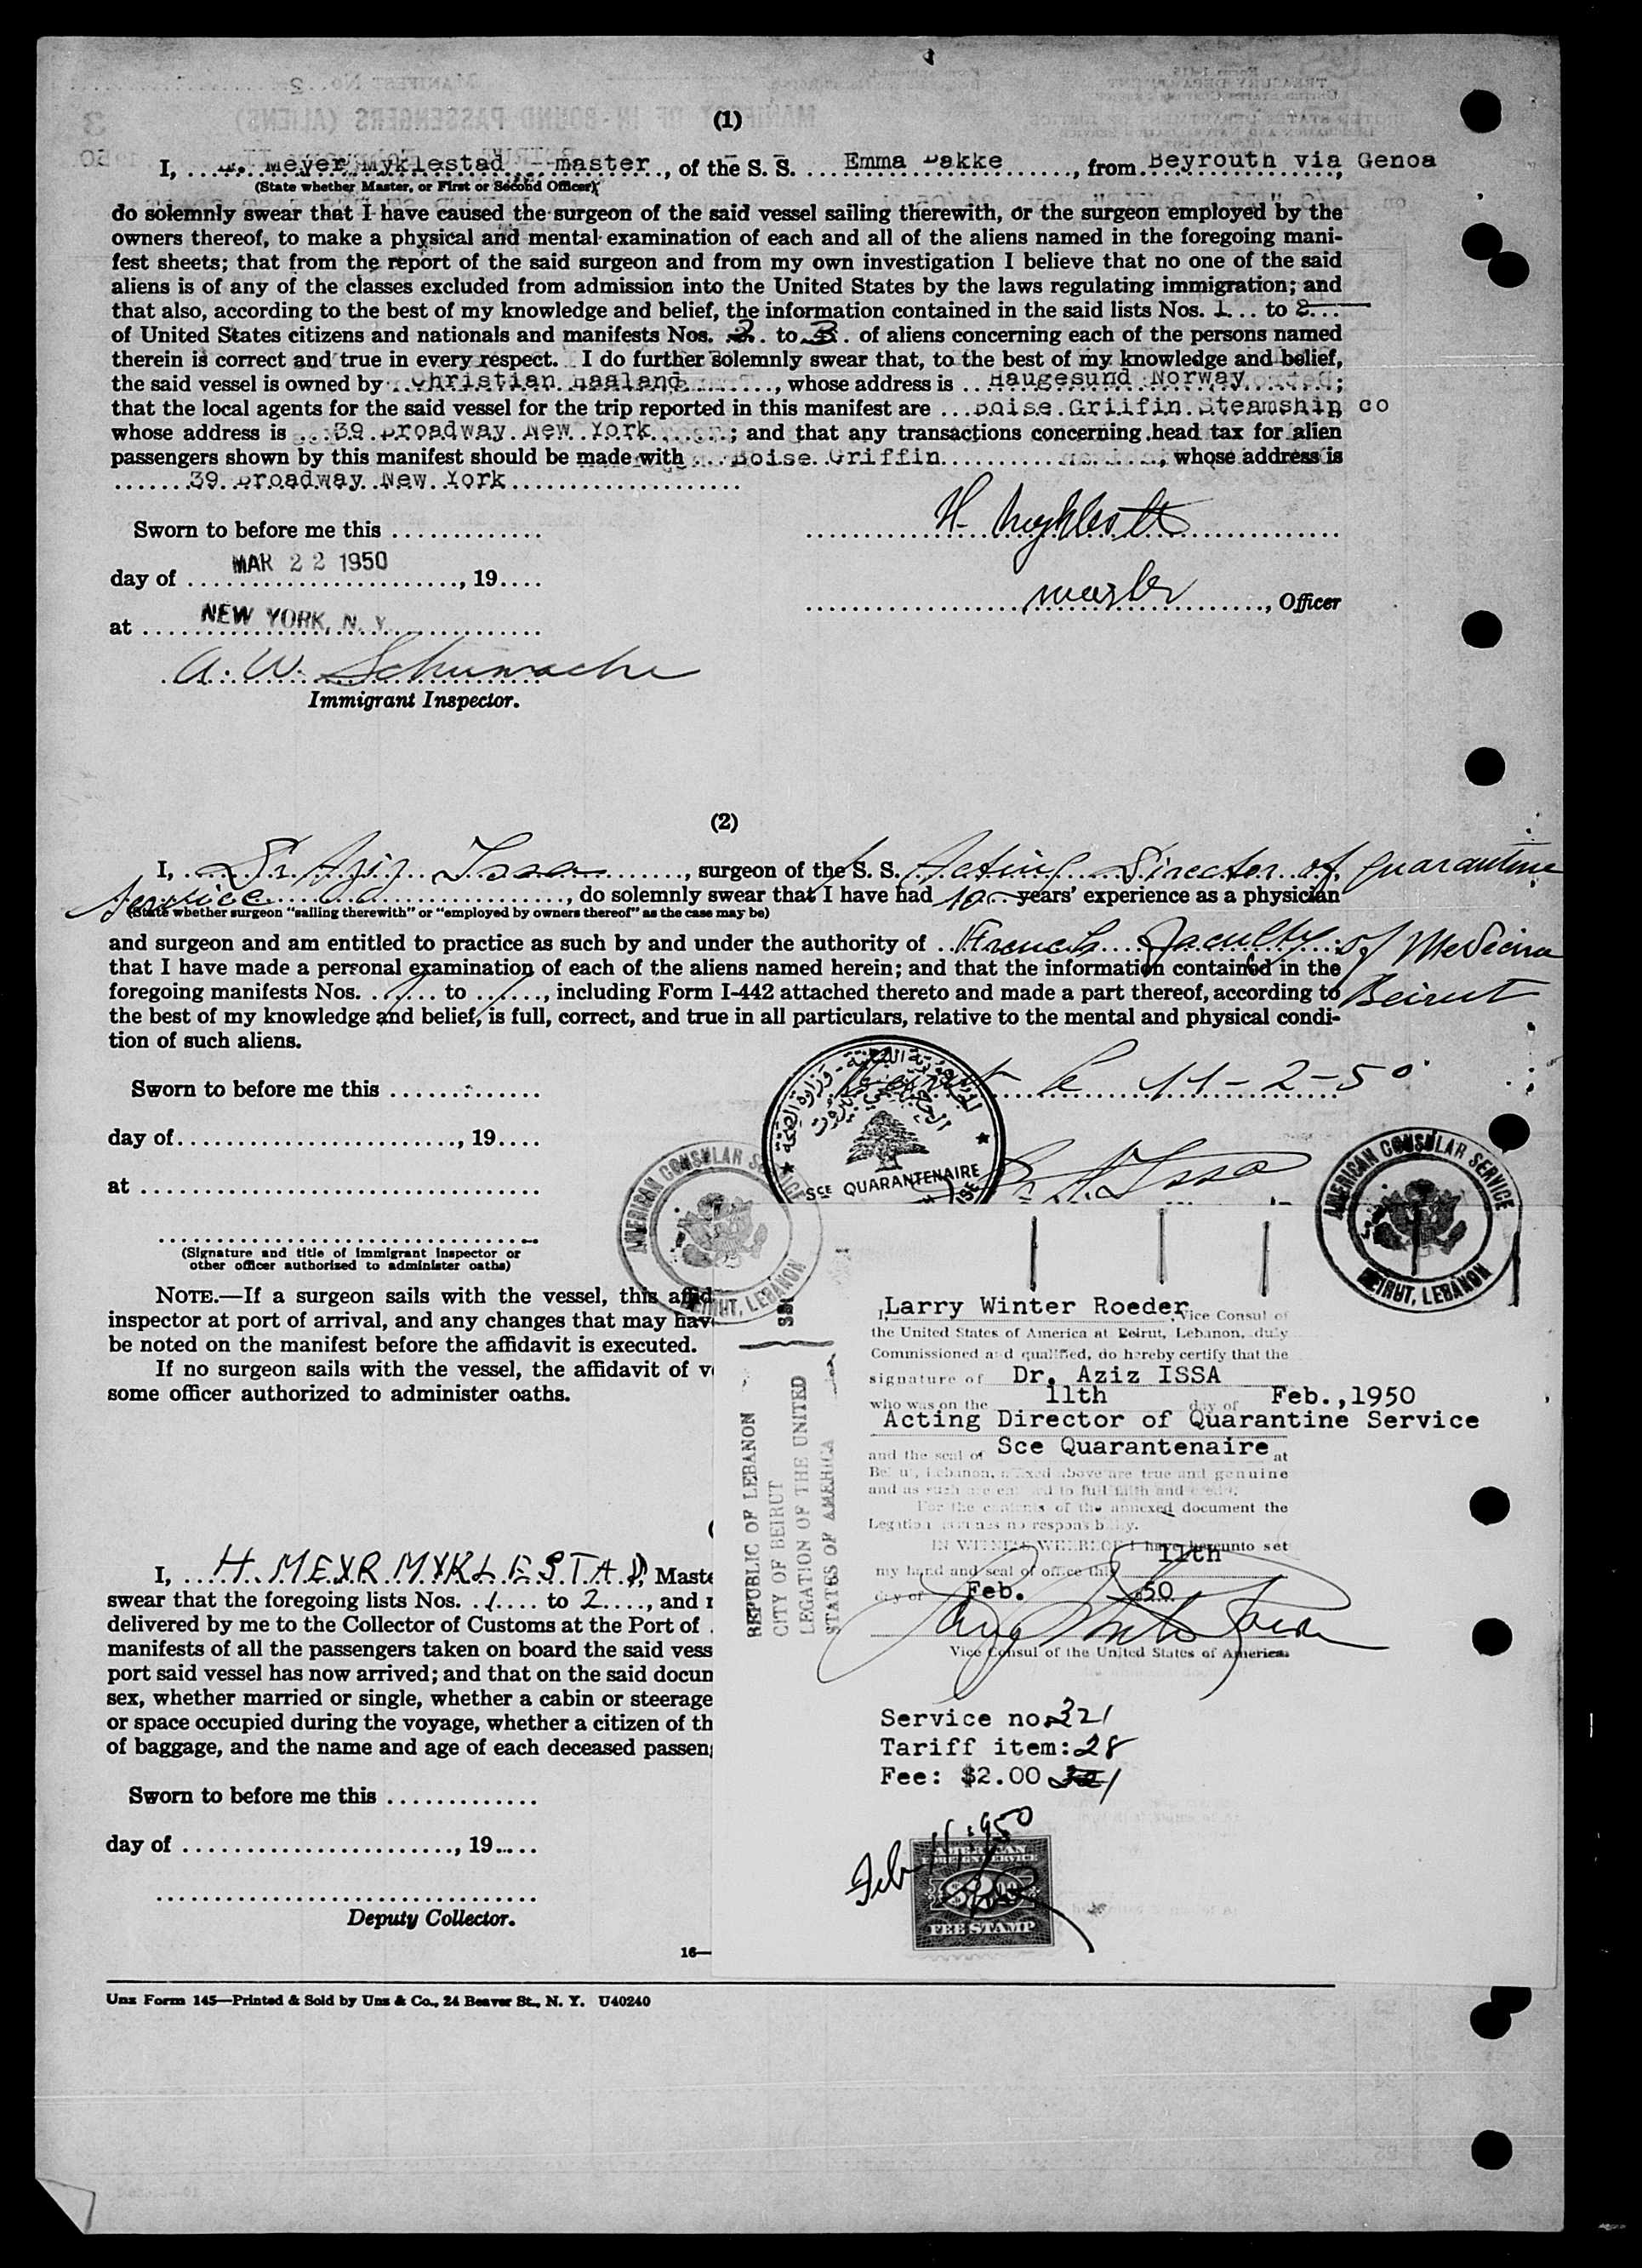 (1)
I, H. Meyer Myklestad - master, of the S. S. Emma Bakke, from Beyrouth via Genoa,
(State whether Master, or First or Second Officer)
do solemnly swear that I have caused the surgeon of the said vessel sailing therewith, or the surgeon employed by the
owners thereof, to make a physical and mental examination of each and all of the aliens named in the foregoing mani-
fest sheets; that from the report of the said surgeon and from my own investigation I believe that no one of the said
aliens is of any of the classes excluded from admission into the United States by the laws regulating immigration; and
that also, according to the best of my knowledge and belief, the information contained in the said lists Nos. 1 to 2
of United States citizens and nationals and manifests Nos. 2 to 3 of aliens concerning each of the persons named
therein is correct and true in every respect. I do further solemnly swear that, to the best of my knowledge and belief,
the said vessel is owned by Christian Haaland, whose address is Haugesund Norway;
that the local agents for the said vessel for the trip reported in this manifest are Boise Griffin Steamship co
whose address is 39 Broadway New York; and that any transactions concerning head tax for alien
passengers shown by this manifest should be made with Boise Griffin, whose address is
39 Broadway New York
Sworn to before me this
H. Myklestad
day of MAR 22 1950, 19
master, Officer
at NEW YORK, N. Y.
A. W. Schumache
Immigrant Inspector.
(2)
I, Dr Aziz Issa, surgeon of the S. S. Acting Director of Quarantine
Service, do solemnly swear that I have had 10 years' experience as a physician
(State whether surgeon "sailing therewith" or "employed by owners thereof" as the case may be)
and surgeon and am entitled to practice as such by and under the authority of French Faculty of Medicine
that I have made a personal examination of each of the aliens named herein; and that the information contained in the
foregoing manifests Nos. to , including Form I-442 attached thereto and made a part thereof, according to Beirut
the best of my knowledge and belief, is full, correct, and true in all particulars, relative to the mental and physical condi-
tion of such aliens.
Sworn to before me this
Beirut le 11-2-50
day of , 19
Dr A. Issa
at
SCE QUARANTENAIRE
AMERICAN CONSULAR SERVICE
BEIRUT, LEBANON
AMERICAN CONSULAR SERVICE
BEIRUT, LEBANON
(Signature and title of Immigrant Inspector or
other officer authorized to administer oaths)
NOTE.—If a surgeon sails with the vessel, this affid
inspector at port of arrival, and any changes that may hav
be noted on the manifest before the affidavit is executed.
If no surgeon sails with the vessel, the affidavit of v
some officer authorized to administer oaths.
REPUBLIC OF LEBANON
CITY OF BEIRUT
LEGATION OF THE UNITED
STATES OF AMERICA
I, Larry Winter Roeder, Vice Consul of
the United States of America at Beirut, Lebanon, duly
Commissioned and qualified, do hereby certify that the
signature of Dr. Aziz ISSA
who was on the 11th day of Feb.,1950
Acting Director of Quarantine Service
and the seal of Sce Quarantenaire at
Beirut, Lebanon, affixed above are true and genuine
and as such are entitled to full faith and credit.
For the contents of the annexed document the
Legation assumes no responsibility.
IN WITNESS WHEREOF I have hereunto set
my hand and seal of office this 11th
day of Feb. 50
Larry Winter Roeder
Vice Consul of the United States of America
Service no. 321
Tariff item: 28
Fee: $2.00
Feb 11, 1950
AMERICAN
FOREIGN SERVICE
$2.00
FEE STAMP
I, H. MEYR MYKLESTAD, Maste
swear that the foregoing lists Nos. 1 to 2, and r
delivered by me to the Collector of Customs at the Port of
manifests of all the passengers taken on board the said vess
port said vessel has now arrived; and that on the said docum
sex, whether married or single, whether a cabin or steerage
or space occupied during the voyage, whether a citizen of th
of baggage, and the name and age of each deceased passen
Sworn to before me this
day of , 19
Deputy Collector.
16—
Unz Form 145—Printed & Sold by Unz & Co., 24 Beaver St., N. Y. U40240